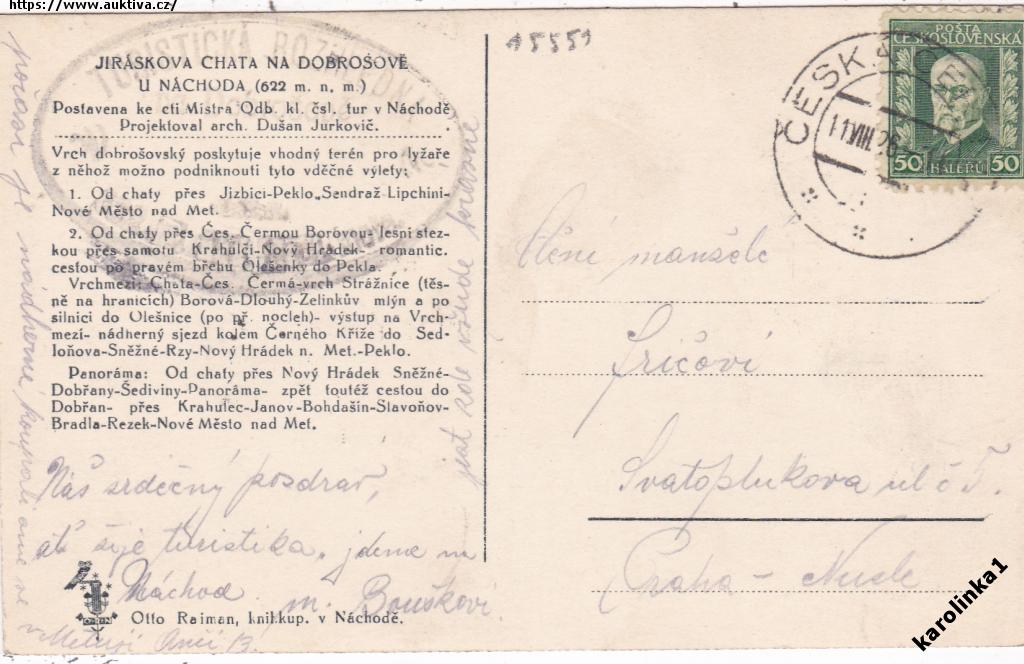 https://www.auktiva.cz/
15551
TURISTICKÁ ROZHLEDNA
JIRÁSKOVA CHATA NA DOBROŠOVĚ
U NÁCHODA (622 m. n. m.)
Postavena ke cti Mistra Odb. kl. čsl. tur v Náchodě
Projektoval arch. Dušan Jurkovič.
Vrch dobrošovský poskytuje vhodný terén pro lyžaře
z něhož možno podniknouti tyto vděčné výlety:
1. Od chaty přes Jizbici-Peklo„Sendraž Lipchini-
Nové Město nad Met.
2. Od chaty přes Čes. Čermou Borovou- lesní stez-
kou přes samotu Krahulčí-Nový Hrádek- romantic.
cestou po pravém břehu Olešenky do Pekla.
Vrchmezí: Chata-Čes. Čermá-vrch Strážnice (těs-
ně na hranicích) Borová-Dlouhý-Zelinkův mlýn a po
silnici do Olešnice (po př. nocleh)- výstup na Vrch-
mezí- nádherný sjezd kolem Černého Kříže do Sed-
loňova-Sněžné-Rzy-Nový Hrádek n. Met.-Peklo.
Panoráma: Od chaty přes Nový Hrádek Sněžné-
Dobřany-Šediviny-Panoráma- zpět toutéž cestou do
Dobřan- přes Krahulec-Janov-Bohdašín-Slavoňov-
Bradla-Rezek-Nové Město nad Met.
Náš srdečný pozdrav,
ať žije turistika, jdeme na
Náchod. m. Bouškovi
Otto Raiman, knihkup. v Náchodě.
počasí je nádherné koupali sme se
v Metuji Anči B.
všude krásně
POŠTA
ČESKOSLOVENSKÁ
50 HALÉŘŮ 50
ČESKÁ
11.VIII.26
Ctění manželé
Fričovi
Svatoplukova ul č 5.
Praha – Nusle
karolinka1